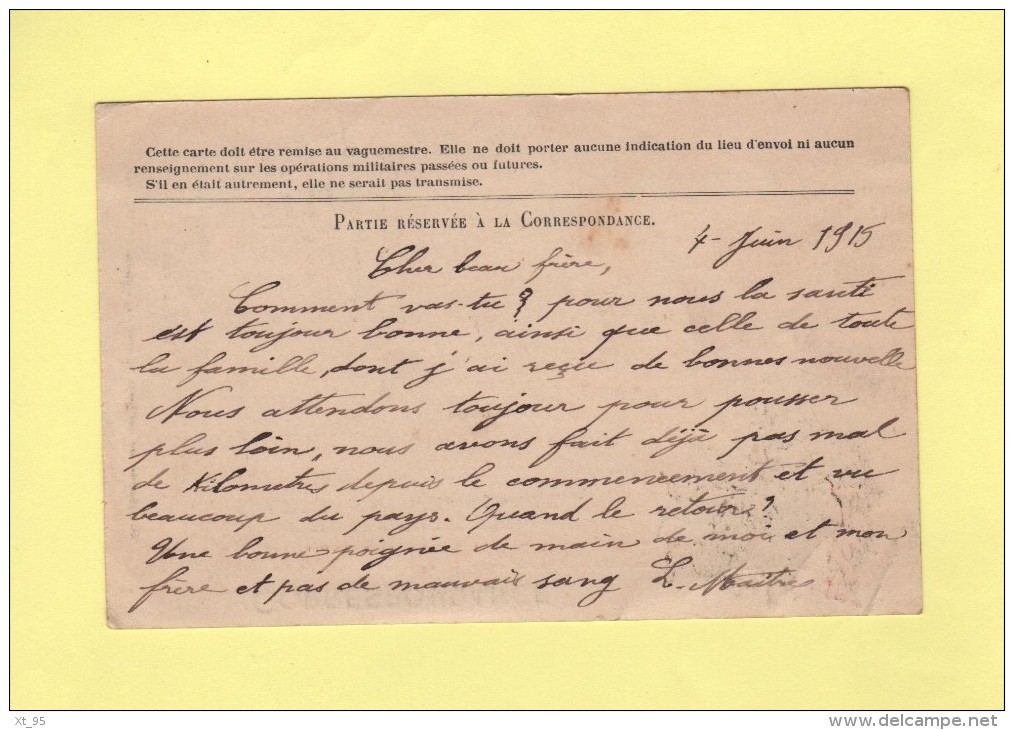 Cette carte doit être remise au vaguemestre. Elle ne doit porter aucune indication du lieu d'envoi ni aucun
renseignement sur les opérations militaires passées ou futures.
S'il en était autrement, elle ne serait pas transmise.
PARTIE RÉSERVÉE À LA CORRESPONDANCE.
4 - Juin 1915
Cher beau frère,
Comment vas-tu ? pour nous la santé
est toujour bonne, ainsi que celle de toute
la famille, dont j'ai reçue de bonnes nouvelle
Nous attendons toujour pour pousser
plus loin, nous avons fait déjà pas mal
de Kilometres depuis le commencement et vu
beaucoup du pays. Quand le retour ?
Une bonne poignée de main de moi et mon
frère et pas de mauvais sang L. Maitre
Xt_95
www.delcampe.net